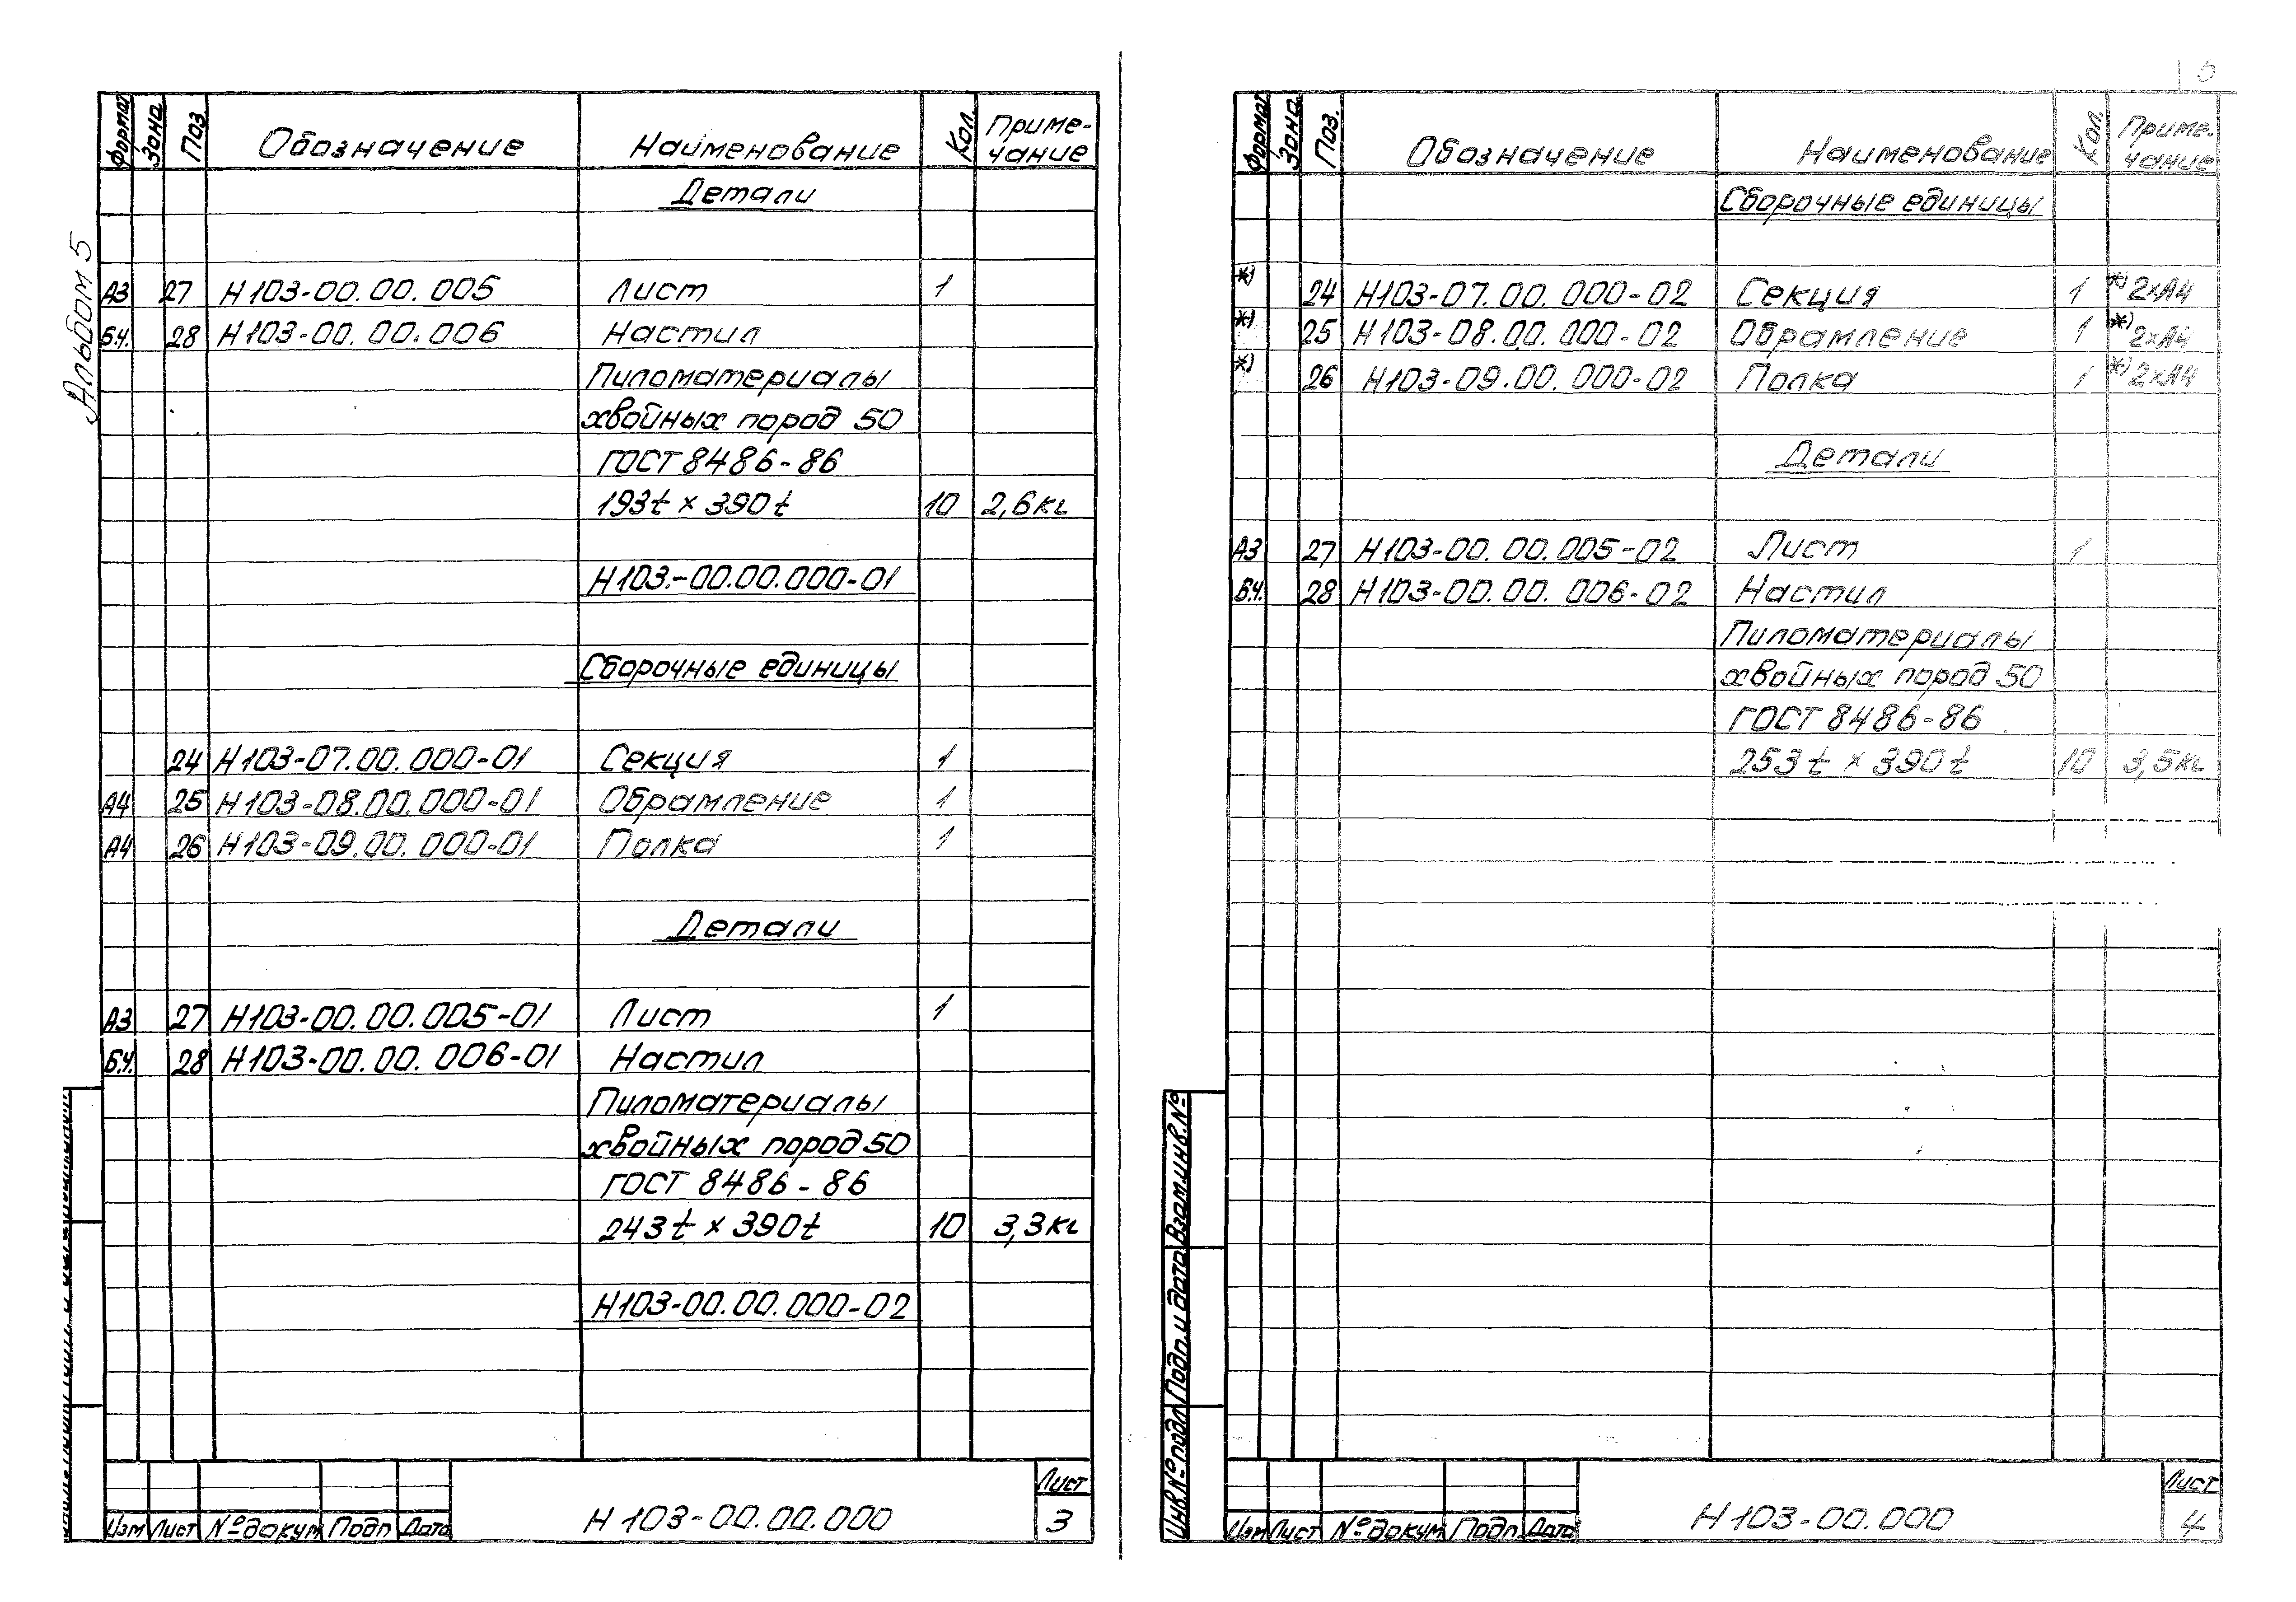 Альбом 5
Формат Зона Поз. Обозначение Наименование Кол. Приме-
чание
Детали
А3 27 Н103-00.00.005 Лист 1
Б.Ч. 28 Н103-00.00.006 Настил
Пиломатериалы
хвойных пород 50
ГОСТ 8486-86
193t × 390t 10 2,6кг
Н103.-00.00.000-01
Сборочные единицы
24 Н103-07.00.000-01 Секция 1
А4 25 Н103-08.00.000-01 Обрамление 1
А4 26 Н103-09.00.000-01 Полка 1
Детали
А3 27 Н103-00.00.005-01 Лист 1
Б.Ч. 28 Н103-00.00.006-01 Настил
Пиломатериалы
хвойных пород 50
ГОСТ 8486-86
243t × 390t 10 3,3кг
Н103-00.00.000-02
Изм Лист № докум Подп Дата
Н103-00.00.000
Лист
3
5
Формат Зона Поз. Обозначение Наименование Кол. Приме-
чание
Сборочные единицы
*) 24 Н103-07.00.000-02 Секция 1 *) 2хА4
*) 25 Н103-08.00.000-02 Обрамление 1 *) 2хА4
*) 26 Н103-09.00.000-02 Полка 1 *) 2хА4
Детали
А3 27 Н103-00.00.005-02 Лист 1
Б.Ч. 28 Н103-00.00.006-02 Настил
Пиломатериалы
хвойных пород 50
ГОСТ 8486-86
253t × 390t 10 3,5кг
Инв.№ подл Подп. и дата Взам.инв.№
Изм Лист № докум Подп. Дата
Н103-00.000
Лист
4